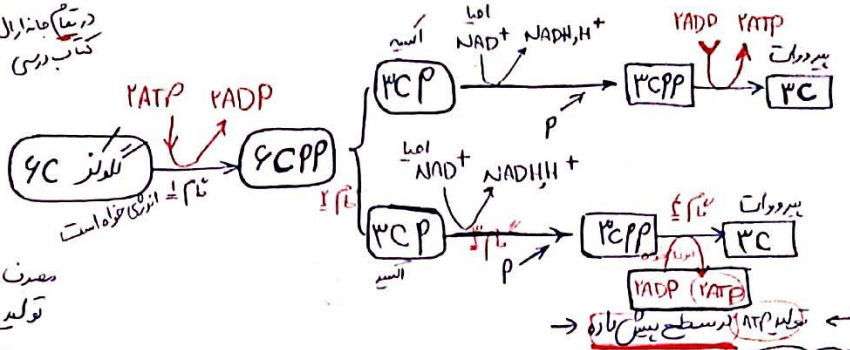 در تمام جانداران
کتاب درسی
۲ATP ۲ADP
۶C گلوکز
گام ۱ = انرژی خواه است
۶CPP
گام ۲
اکسید
احیا
۳CP
NAD+ NADH,H+
P
۳CPP
۲ADP ۲ATP
پیرووات
۳C
احیا
NAD+ NADH,H+
۳CP
اکسید
گام ۳
P
۳CPP
گام ۴
پیرووات
۳C
۲ADP ۲ATP
مصرف
تولید
← تولید ATP در سطح پیش ماده →